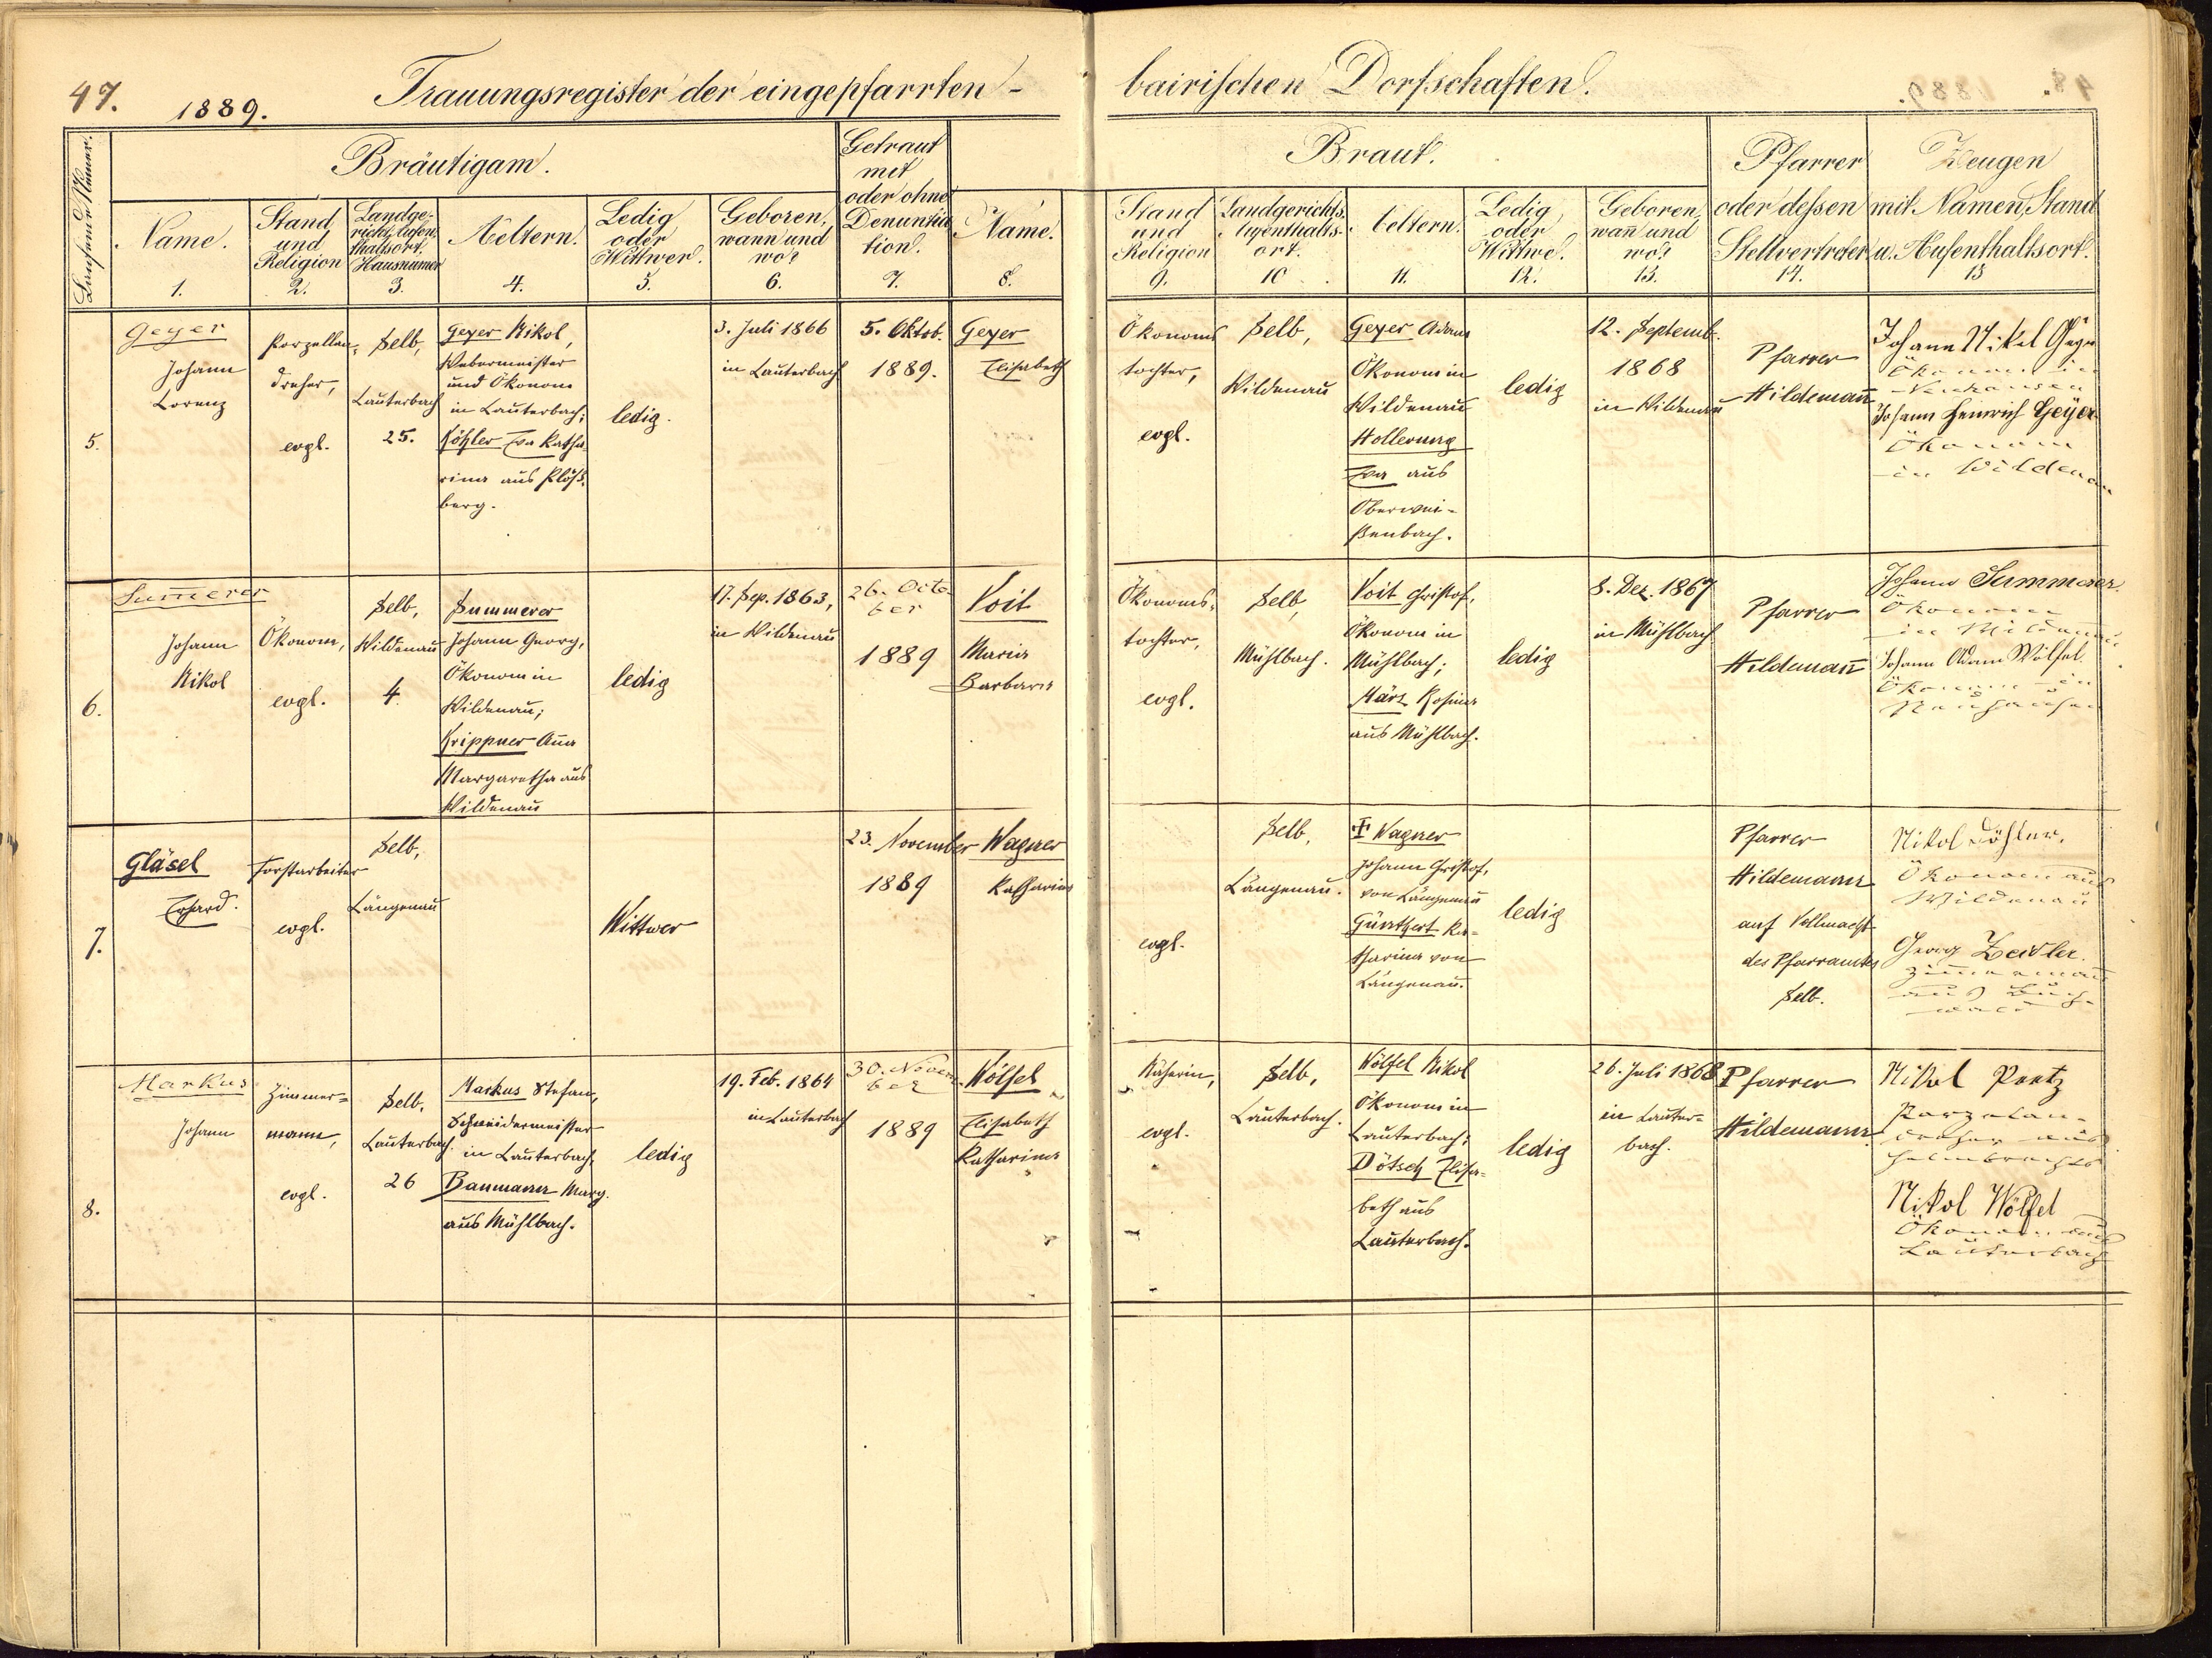 47.
1889.
Trauungsregister der eingepfarrten -
bairischen Dorfschaften.
Laufende Numer.
Bräutigam.
Name.
1.
Stand
und
Religion
2.
Landge-
richt, Aufen-
thaltsort,
Hausnumer
3.
Aeltern.
4.
Ledig
oder
Wittwer.
5.
Geboren,
wann und
wo?
6.
Getraut
mit
oder ohne
Denuntia
tion.
7.
Braut.
Name.
8.
Stand
und
Religion
9.
Landgerichts-
Aufenthalts-
ort.
10
Aeltern.
11.
Ledig
oder
Wittwe.
12.
Geboren,
wañ und
wo?
13.
Pfarrer
oder dessen
Stellvertreter
14.
Zeugen
mit Namen, Stand
u. Aufenthaltsort.
15
5.
Geyer
Johann
Lorenz
Porzellan-
dreher,
evgl.
Selb,
Lauterbach
25.
Geyer Nikol,
Webermeister
und Ökonom
in Lauterbach;
Köhler Eva Katha
rina aus Plöß-
berg.
ledig.
3. Juli 1866
in Lauterbach
5. Oktob.
1889.
Geyer
Elisabeth
Ökonoms
tochter,
evgl.
Selb,
Wildenau
Geyer Adam
Ökonom in
Wildenau
Hollerung
Eva aus
Oberwei-
ßenbach.
ledig
12. Septemb.
1868
in Wildenau
Pfarrer
Hildemañ
Johann Nikol Geyer
Ökonom in
Neuhausen
Johann Heinrich Geyer
Ökonom
in Wildenau
6.
Sum̅erer
Johann
Nikol
Ökonom,
evgl.
Selb,
Wildenau
4.
Summerer
Johann Georg,
Ökonom in
Wildenau;
Krippner Aña
Margaretha aus
Wildenau
ledig
17. Sep. 1863,
in Wildenau
26. Octo-
ber
1889
Voit
Maria
Barbara
Ökonoms-
tochter,
evgl.
Selb,
Mühlbach.
Voit Christof,
Ökonom in
Mühlbach;
März Rosina
aus Mühlbach.
ledig
8. Dez. 1867
in Mühlbach
Pfarrer
Hildemañ
Johann Summerer
Ökonom
in Wildenau.
Johann Adam Wölfel
Ökonom in
Neuhausen
7.
Gläsel
Erhard.
Forstarbeiter
evgl.
Selb,
Längenau
Wittwer
23. November
1889
Wagner
Katharina
evgl.
Selb,
Längenau.
† Wagner
Johann Christof,
von Längenau
Günthert Ka-
tharina von
Längenau.
ledig
Pfarrer
Hildemann
auf Vollmacht
des Pfarramtes
Selb.
Nikol Döhler,
Ökonom aus
Wildenau
Georg Zeidler
Zim̅ermañ
aus Buch-
wald
8.
Markus
Johann
Zimmer-
mann,
evgl.
Selb,
Lauterbach.
26
Markus Stefan,
Schneidermeister
in Lauterbach,
Baumann Marg.
aus Mühlbach.
ledig
19. Feb. 1864
in Lauterbach
30. Novem-
ber
1889
Wölfel
Elisabeth
Katharina
Näherin,
evgl.
Selb,
Lauterbach.
Wölfel Nikol
Ökonom in
Lauterbach;
Dötsch Elisa-
beth aus
Lauterbach.
ledig
26. Juli 1868
in Lauter-
bach.
Pfarrer
Hildemann
Nikol
Porzelan-
dreher aus
Nikol Wölfel
Ökonom aus
Lauterbach